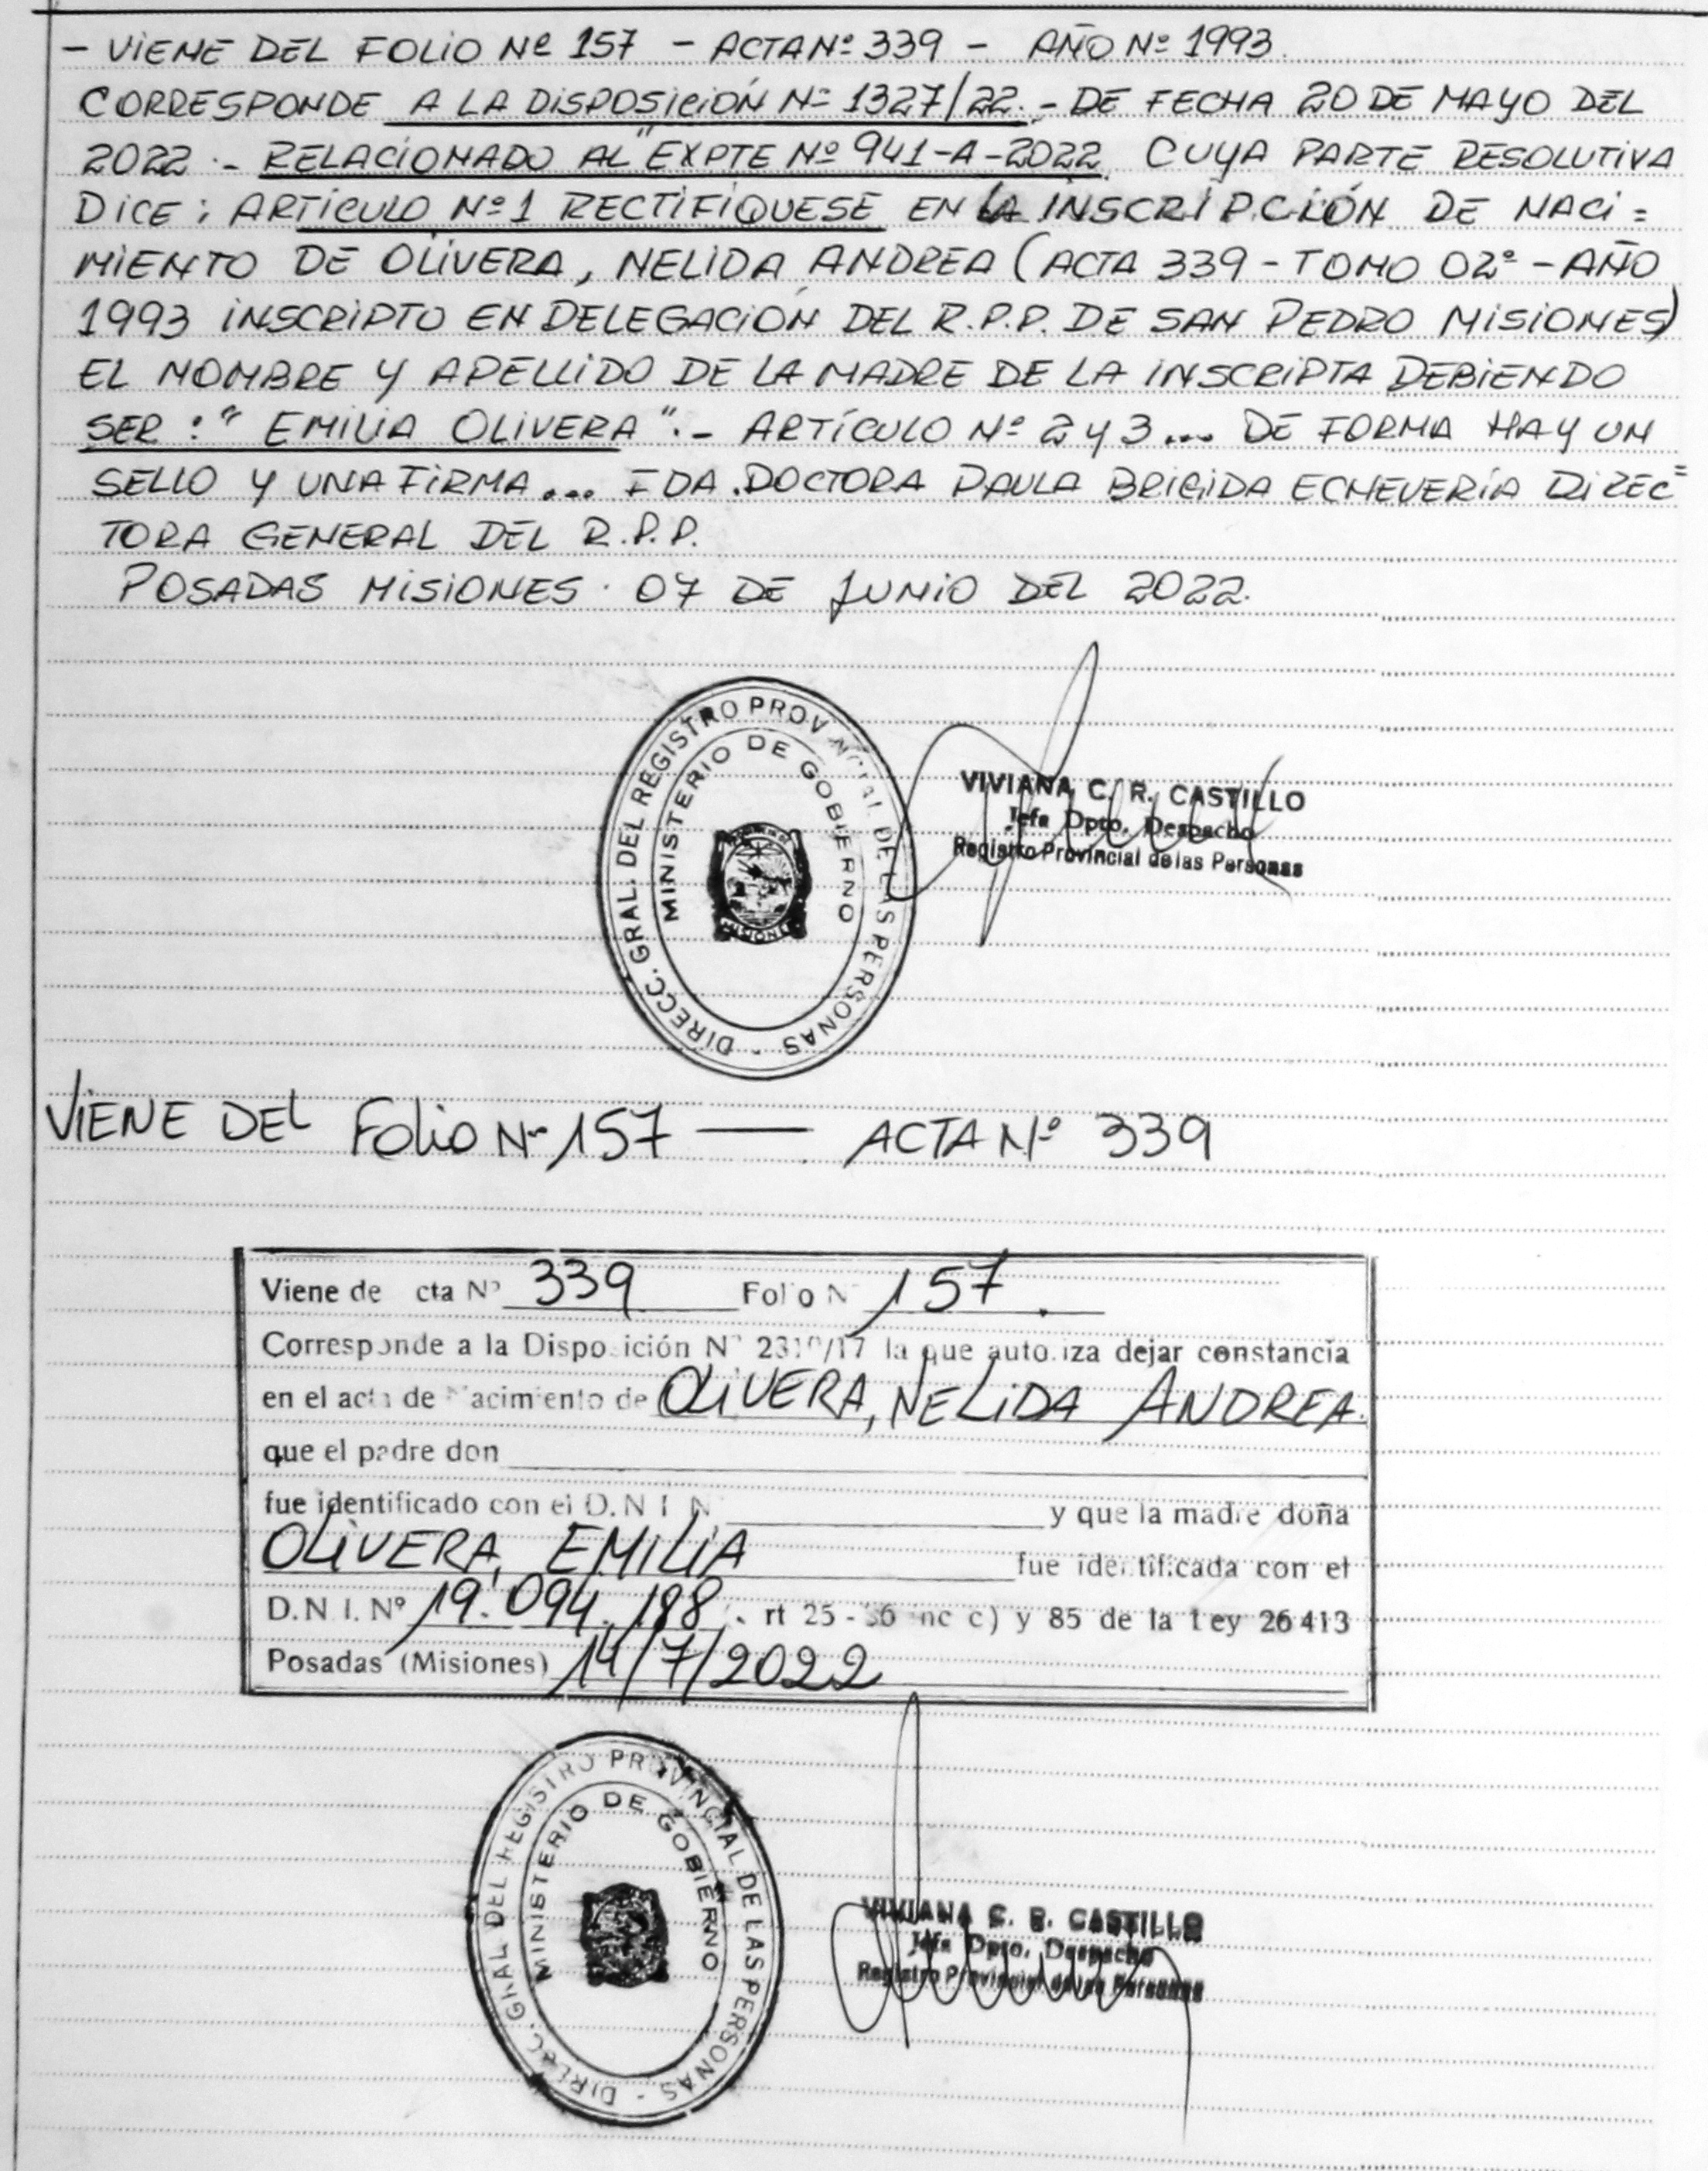 - VIENE DEL FOLIO Nº 157 - ACTA Nº 339 - AÑO Nº 1993.
CORRESPONDE A LA DISPOSICIÓN Nº 1327/22.- DE FECHA 20 DE MAYO DEL
2022.- RELACIONADO AL "EXPTE Nº 941-A-2022 CUYA PARTE RESOLUTIVA
DICE: ARTÍCULO Nº 1 RECTIFIQUESE EN LA INSCRIPCIÓN DE NACI=
MIENTO DE OLIVERA, NELIDA ANDREA (ACTA 339 - TOMO 02º - AÑO
1993 INSCRIPTO EN DELEGACIÓN DEL R.P.P. DE SAN PEDRO MISIONES)
EL NOMBRE Y APELLIDO DE LA MADRE DE LA INSCRIPTA DEBIENDO
SER: "EMILIA OLIVERA".- ARTÍCULO Nº 2 Y 3... DE FORMA HAY UN
SELLO Y UNA FIRMA... FDA. DOCTORA PAULA BRIGIDA ECHEVERÍA DIREC=
TORA GENERAL DEL R.P.P.
POSADAS MISIONES. 07 DE JUNIO DEL 2022.
DIRECC. GRAL. DEL REGISTRO PROVINCIAL DE LAS PERSONAS -
MINISTERIO DE GOBIERNO
MISIONES
VIVIANA C. R. CASTILLO
Jefa Dpto. Despacho
Registro Provincial de las Personas
VIENE DEL Folio Nº 157 — ACTA Nº 339
Viene de cta Nº 339 Folio N 157.
Corresponde a la Disposición Nº /17 la que autoriza dejar constancia
en el acta de Nacimiento de OLIVERA, NELIDA ANDREA.
que el padre don
fue identificado con el D.N I N y que la madre doña
OLIVERA, EMILIA fue identificada con el
D.N.I. Nº 19.094.188 rt 25 - 36 inc c) y 85 de la Ley 26413
Posadas (Misiones) 14/7/2022
DIRECC. GRAL DEL REGISTRO PROVINCIAL DE LAS PERSONAS -
MINISTERIO DE GOBIERNO
VIVIANA C. R. CASTILLO
Jefa Dpto. Despacho
Registro Provincial de las Personas